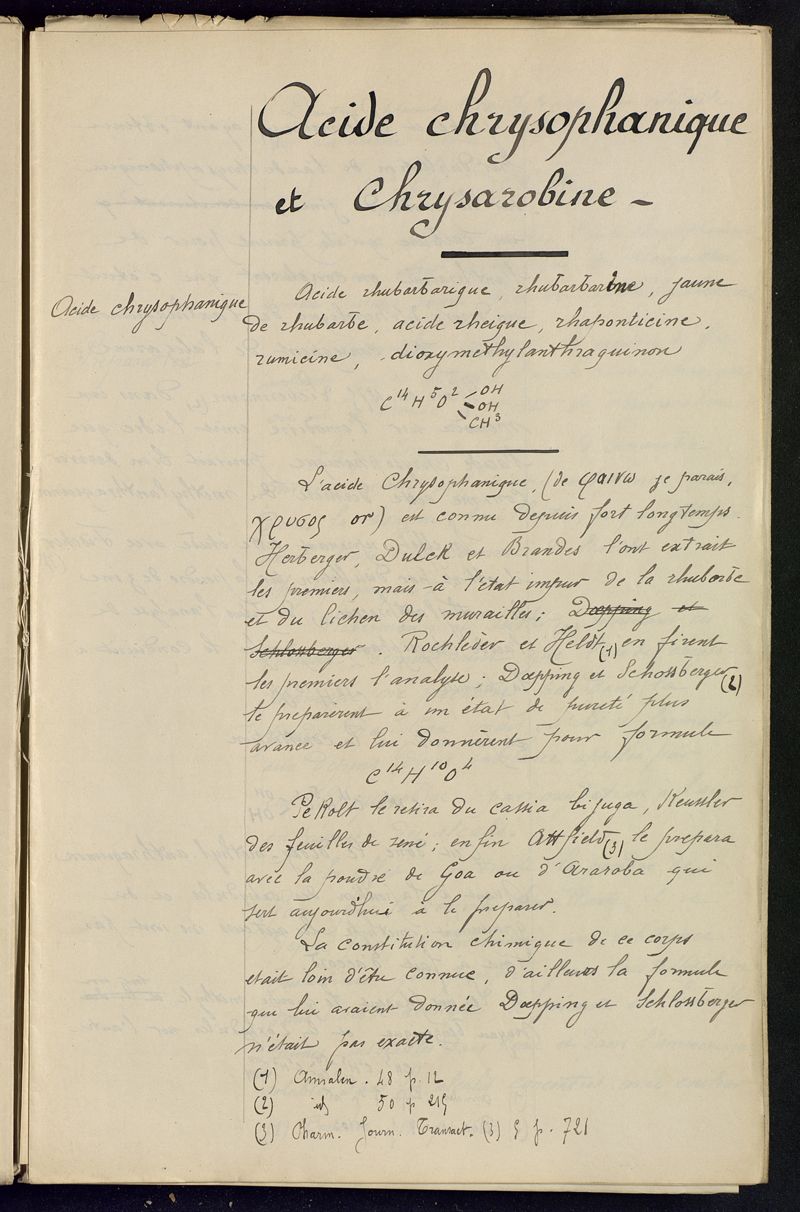 Acide chrysophanique
et Chrysarobine -
Acide chrysophanique
Acide rhubarbarique, rhubarbarine, jaune
de rhubarbe, acide rheique, rhaponticine,
rumicine, dioxymethylanthraquinon
C¹⁴H⁵O² OH
OH
CH³
L'acide Chrysophanique, (de φαινω je parais,
χρυσος or) est connu depuis fort longtemps.
Herberger, Dulck et Brandes l'ont extrait
les premiers, mais à l'état impur de la rhubarbe
et du lichen des murailles; Dœpping et
Schlossberger. Rochleder et Heldt (1) en firent
les premiers l'analyse; Dœpping et Schossberger (2)
le préparèrent à un état de pureté plus
avancé et lui donnèrent pour formule
C¹⁴H¹⁰O⁴
Pekolt le retira du cassia bijuga, Keussler
des feuilles de séné; enfin Attfield (3) le prépara
avec la poudre de Goa ou d'Araroba qui
sert aujourd'hui à le préparer.
La constitution chimique de ce corps
était loin d'être connue, d'ailleurs la formule
que lui avaient donnée Dœpping et Schlossberger
n'était pas exacte.
(1) Annalen. 48 p. 12
(2) id 50 p 215
(3) Pharm. Journ. Transact. (3) 5 p. 721